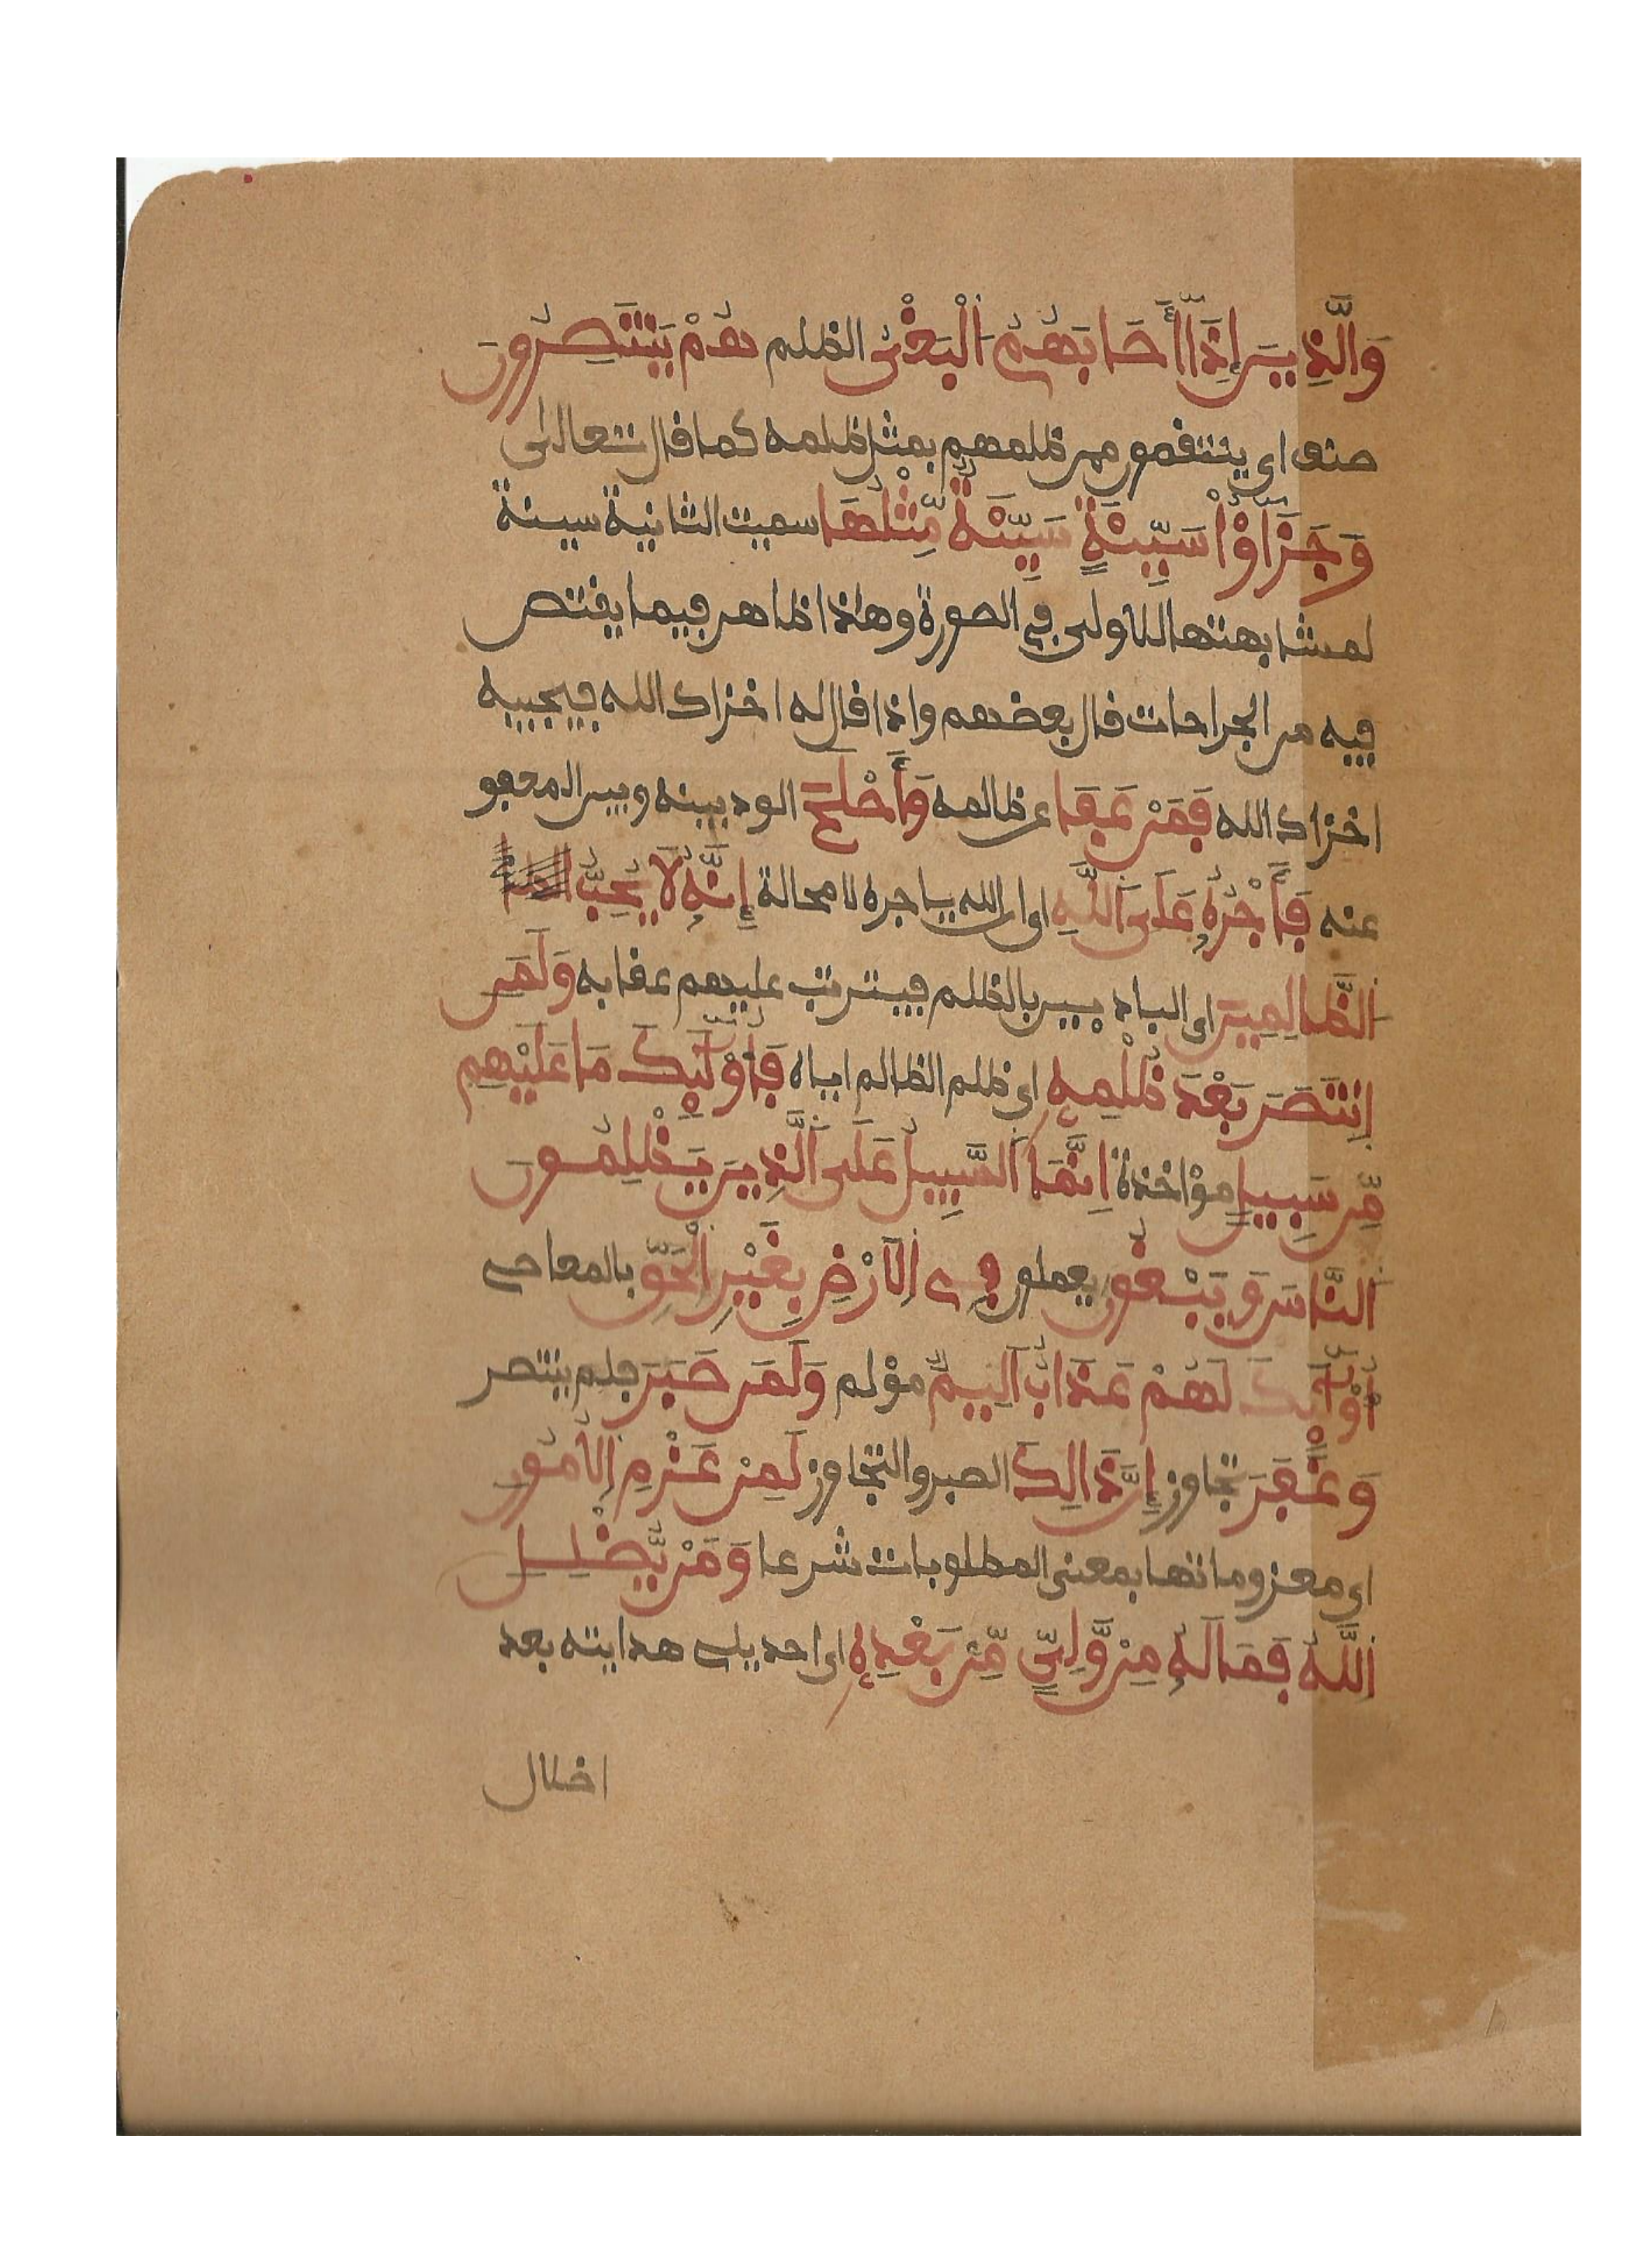 وَالَّذِينَ إِذَا أَصَابَهُمُ الْبَغْىُ الظلم هُمْ يَنتَصِرُونَ
صنف اى ينتقمون ممن ظلمهم بمثل ظلمه كما قال تعالى
وَجَزَٰؤُاْ سَيِّئَةٍ سَيِّئَةٌ مِّثْلُهَا سميت الثانية سيئة
لمشابهتها للاولى في الصورة وهذا ظاهر فيما يقتص
فيه من الجراحات قال بعضهم واذا قال له اخزاك الله فيجيبه
اخزاك الله فَمَنْ عَفَا عن ظالمه وَأَصْلَحَ الود بينه وبين المعفو
عنه فَأَجْرُهُ عَلَى اللَّهِ اى ان الله ياجره لا محالة إِنَّهُ لَا يُحِبُّ
الظَّالِمِينَ اى البادءيين بالظلم فيترتب عليهم عقابه وَلَمَنِ
انتَصَرَ بَعْدَ ظُلْمِهِ اى ظلم الظالم اياه فَأُوْلَٰئِكَ مَا عَلَيْهِم
مِّن سَبِيلٍ مؤاخذة إِنَّمَا السَّبِيلُ عَلَى الَّذِينَ يَظْلِمُونَ
النَّاسَ وَيَبْغُونَ يعملون فِي الْأَرْضِ بِغَيْرِ الْحَقِّ بالمعاصى
أُوْلَٰئِكَ لَهُمْ عَذَابٌ أَلِيمٌ مؤلم وَلَمَن صَبَرَ فلم ينتصر
وَغَفَرَ تجاوز إِنَّ ذَالِكَ الصبر والتجاوز لَمِنْ عَزْمِ الْأُمُورِ
اى معزوماتها بمعنى المطلوبات شرعا وَمَنْ يُّضْلِلِ
اللَّهُ فَمَا لَهُ مِنْ وَّلِيٍّ مِّنْ بَعْدِهِ اى احد يلى هدايته بعد
اضلال